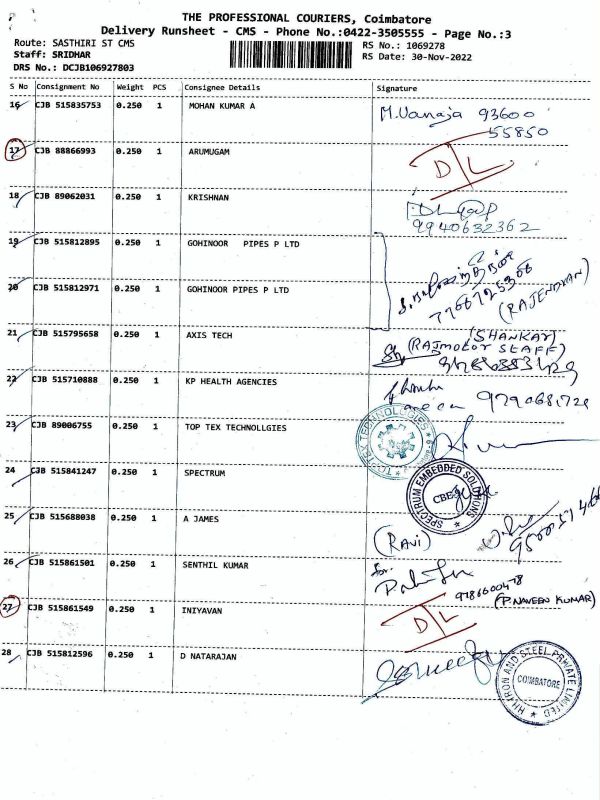 THE PROFESSIONAL COURIERS, Coimbatore
Delivery Runsheet - CMS - Phone No.:0422-3505555 - Page No.:3
Route: SASTHIRI ST CMS
RS No.: 1069278
Staff: SRIDHAR
RS Date: 30-Nov-2022
DRS No.: DCJB106927803
S No Consignment No Weight PCS Consignee Details Signature
16 CJB 515835753 0.250 1 MOHAN KUMAR A M.Vanaja 93600
55850
17 CJB 88866993 0.250 1 ARUMUGAM D/L
18 CJB 89062031 0.250 1 KRISHNAN
9940632362
19 CJB 515812895 0.250 1 GOHINOOR PIPES P LTD
20 CJB 515812971 0.250 1 GOHINOOR PIPES P LTD
(RAJENDRAN)
21 CJB 515795658 0.250 1 AXIS TECH (SHANKAR)
(RAJMOTOR STAFF)
22 CJB 515710888 0.250 1 KP HEALTH AGENCIES
23 CJB 89006755 0.250 1 TOP TEX TECHNOLLGIES
TOP TEX TECHNOLOGIES
24 CJB 515841247 0.250 1 SPECTRUM
SPECTRUM EMBEDDED SOLUTIONS
CBE
25 CJB 515688038 0.250 1 A JAMES (RAVI)
26 CJB 515861501 0.250 1 SENTHIL KUMAR for
9786600478
(P.NAVEEN KUMAR)
27 CJB 515861549 0.250 1 INIYAVAN D/L
28 CJB 515812596 0.250 1 D NATARAJAN
IRON AND STEEL PRIVATE LIMITED
COIMBATORE